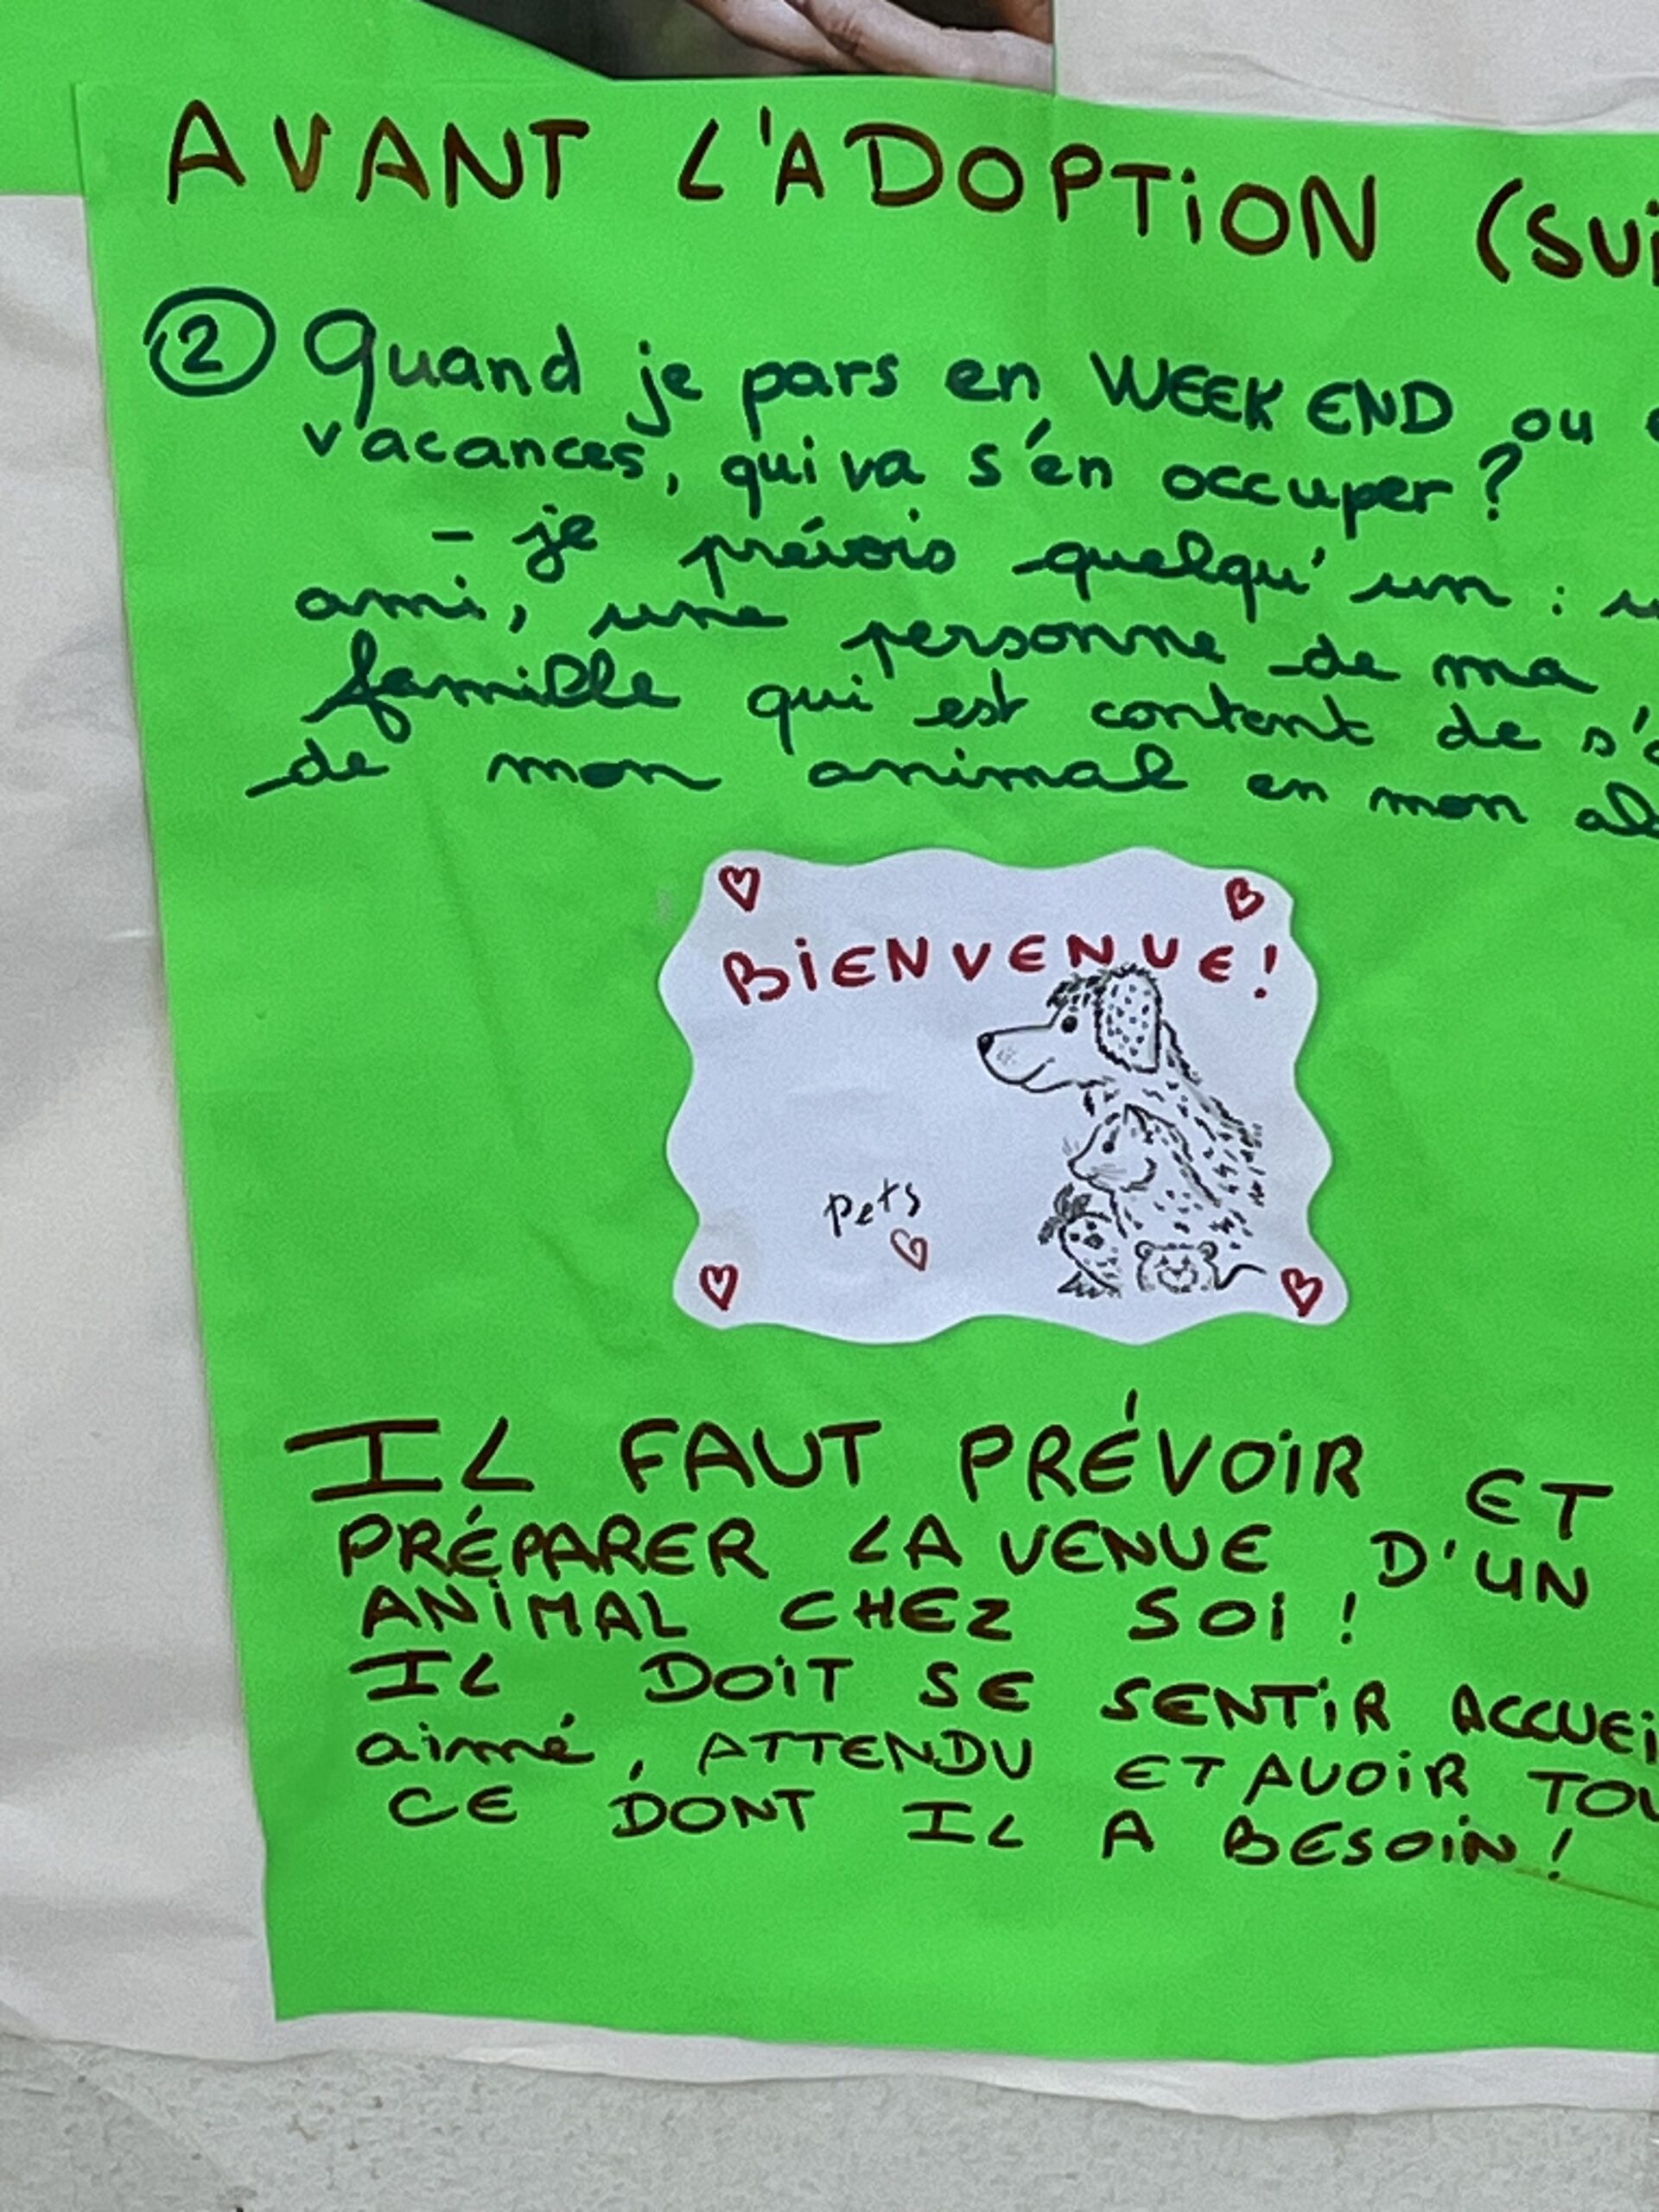 AVANT L'ADOPTION (SUI
② Quand je pars en WEEK END ou
vacances, qui va s'en occuper ?
- je prévois quelqu'un :
ami, une personne de ma
famille qui est content de s'
de mon animal en mon
BIENVENUE !
pets
IL FAUT PRÉVOIR ET
PRÉPARER LA VENUE D'UN
ANIMAL CHEZ SOI !
IL DOIT SE SENTIR ACCUEI
aimé, ATTENDU ET AVOIR TOU
CE DONT IL A BESOIN !